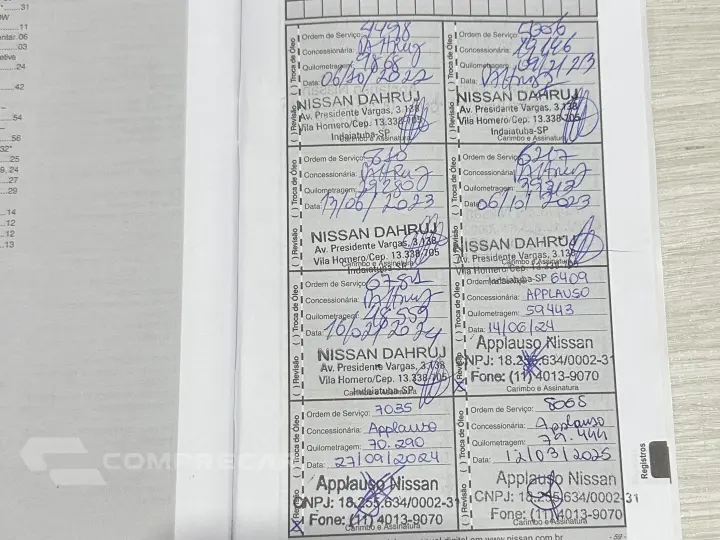 31
11
.03
.24
.42
.54
.56
32*
.25
9, 24
.27
.29
.14
.12
.13
( ) Revisão ( ) Troca de Óleo
Ordem de Serviço: 4498
Concessionária: DAHRUJ
Quilometragem: 9868
Data: 06/10/2022
NISSAN DAHRUJ
Av. Presidente Vargas, 3.138
Vila Homero/Cep. 13.338-705
Indaiatuba-SP
Carimbo e Assinatura
( ) Revisão ( ) Troca de Óleo
Ordem de Serviço:
Concessionária:
Quilometragem:
Data:
NISSAN DAHRUJ
Av. Presidente Vargas, 3.138
Vila Homero/Cep. 13.338-705
Indaiatuba-SP
Carimbo e Assinatura
( ) Revisão ( ) Troca de Óleo
Ordem de Serviço:
Concessionária: DAHRUJ
Quilometragem: 29280
Data: 13/06/2023
NISSAN DAHRUJ
Av. Presidente Vargas, 3.138
Vila Homero/Cep. 13.338-705
Indaiatuba-SP
Carimbo e Assinatura
( ) Revisão ( ) Troca de Óleo
Ordem de Serviço:
Concessionária: DAHRUJ
Quilometragem:
Data: 06/10/2023
NISSAN DAHRUJ
Av. Presidente Vargas, 3.138
Vila Homero/Cep. 13.338-705
Indaiatuba-SP
Carimbo e Assinatura
( ) Revisão ( ) Troca de Óleo
Ordem de Serviço:
Concessionária: DAHRUJ
Quilometragem: 48559
Data: 16/02/2024
NISSAN DAHRUJ
Av. Presidente Vargas, 3.138
Vila Homero/Cep. 13.338-705
Indaiatuba-SP
Carimbo e Assinatura
(X) Revisão ( ) Troca de Óleo
Ordem de Serviço: 6409
Concessionária: APPLAUSO
Quilometragem: 59443
Data: 14/06/24
Applauso Nissan
CNPJ: 18.255.634/0002-31
Fone: (11) 4013-9070
Carimbo e Assinatura
(X) Revisão ( ) Troca de Óleo
Ordem de Serviço: 7035
Concessionária: Applauso
Quilometragem: 70.290
Data: 27/09/2024
Applauso Nissan
CNPJ: 18.255.634/0002-31
Fone: (11) 4013-9070
Carimbo e Assinatura
(X) Revisão ( ) Troca de Óleo
Ordem de Serviço: 8068
Concessionária: Applauso
Quilometragem: 79.444
Data: 12/03/2025
Applauso Nissan
CNPJ: 18.255.634/0002-31
Fone: (11) 4013-9070
Carimbo e Assinatura
Registros
digital em www.nissan.com.br
COMPRECAR